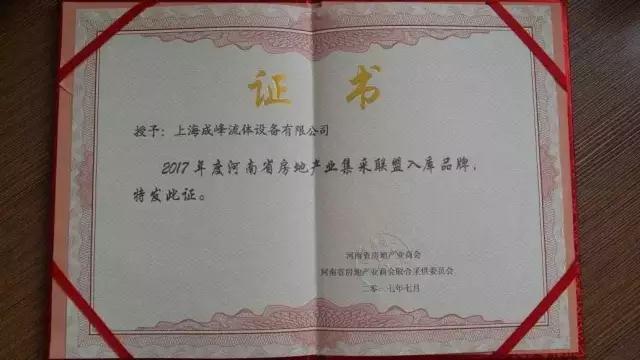 证书
授予：上海成峰流体设备有限公司
2017年度河南省房地产业集采联盟入库品牌，
特发此证。
河南省房地产业商会
河南省房地产业商会联合采供委员会
二〇一七年七月